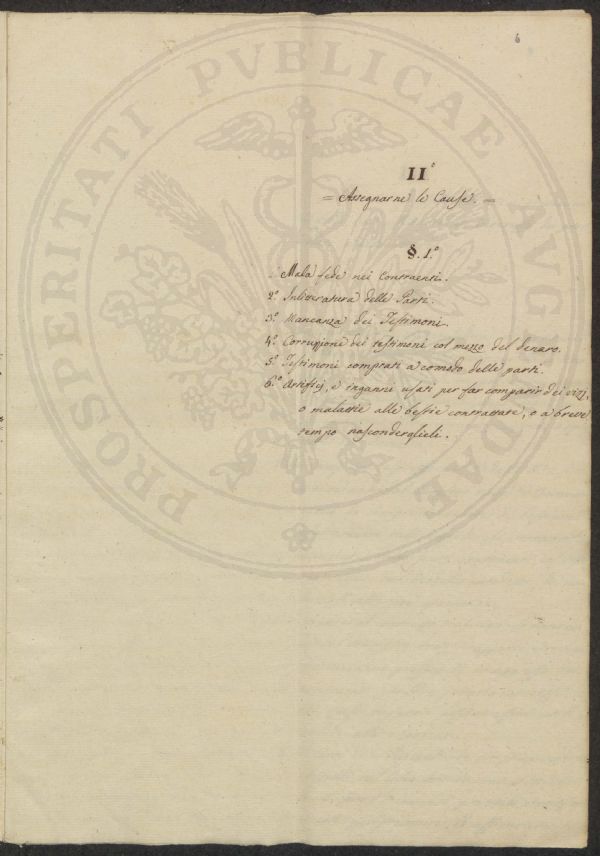 6
PROSPERITATI PVBLICAE AVGENDAE
II°
= Assegnarne le Cause. =
§. 1.°
1.° Mala fede nei Contraenti.
2.° Inletteratura delle Parti.
3.° Mancanza dei Testimoni.
4.° Corruzione dei testimoni col mezzo del denaro.
5.° Testimoni comprati a comodo delle parti.
6.° Artifizj, e inganni usati per far comparir dei vizz,
o malattie alle bestie contrattate, o a breve
tempo nasconderglieli.